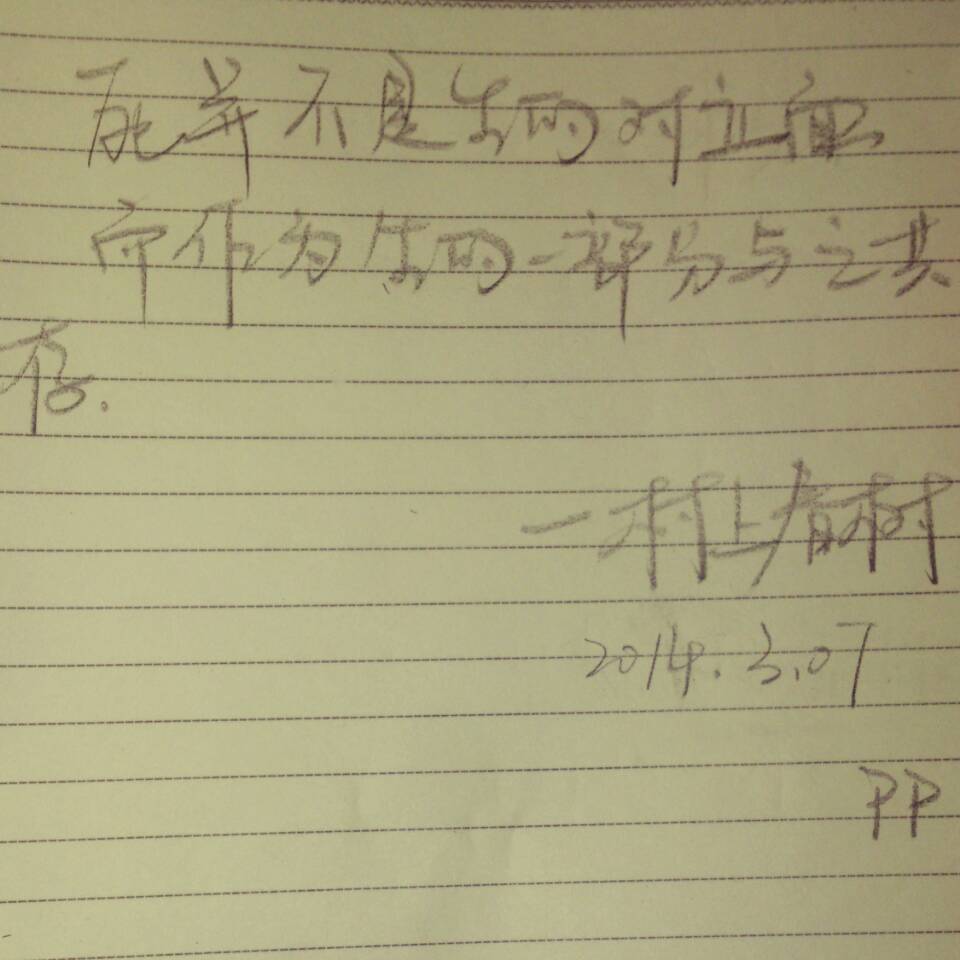 死并不是生的对立面
而作为生的一部分与之共
存.
一村上春树
2014.3.07
PP